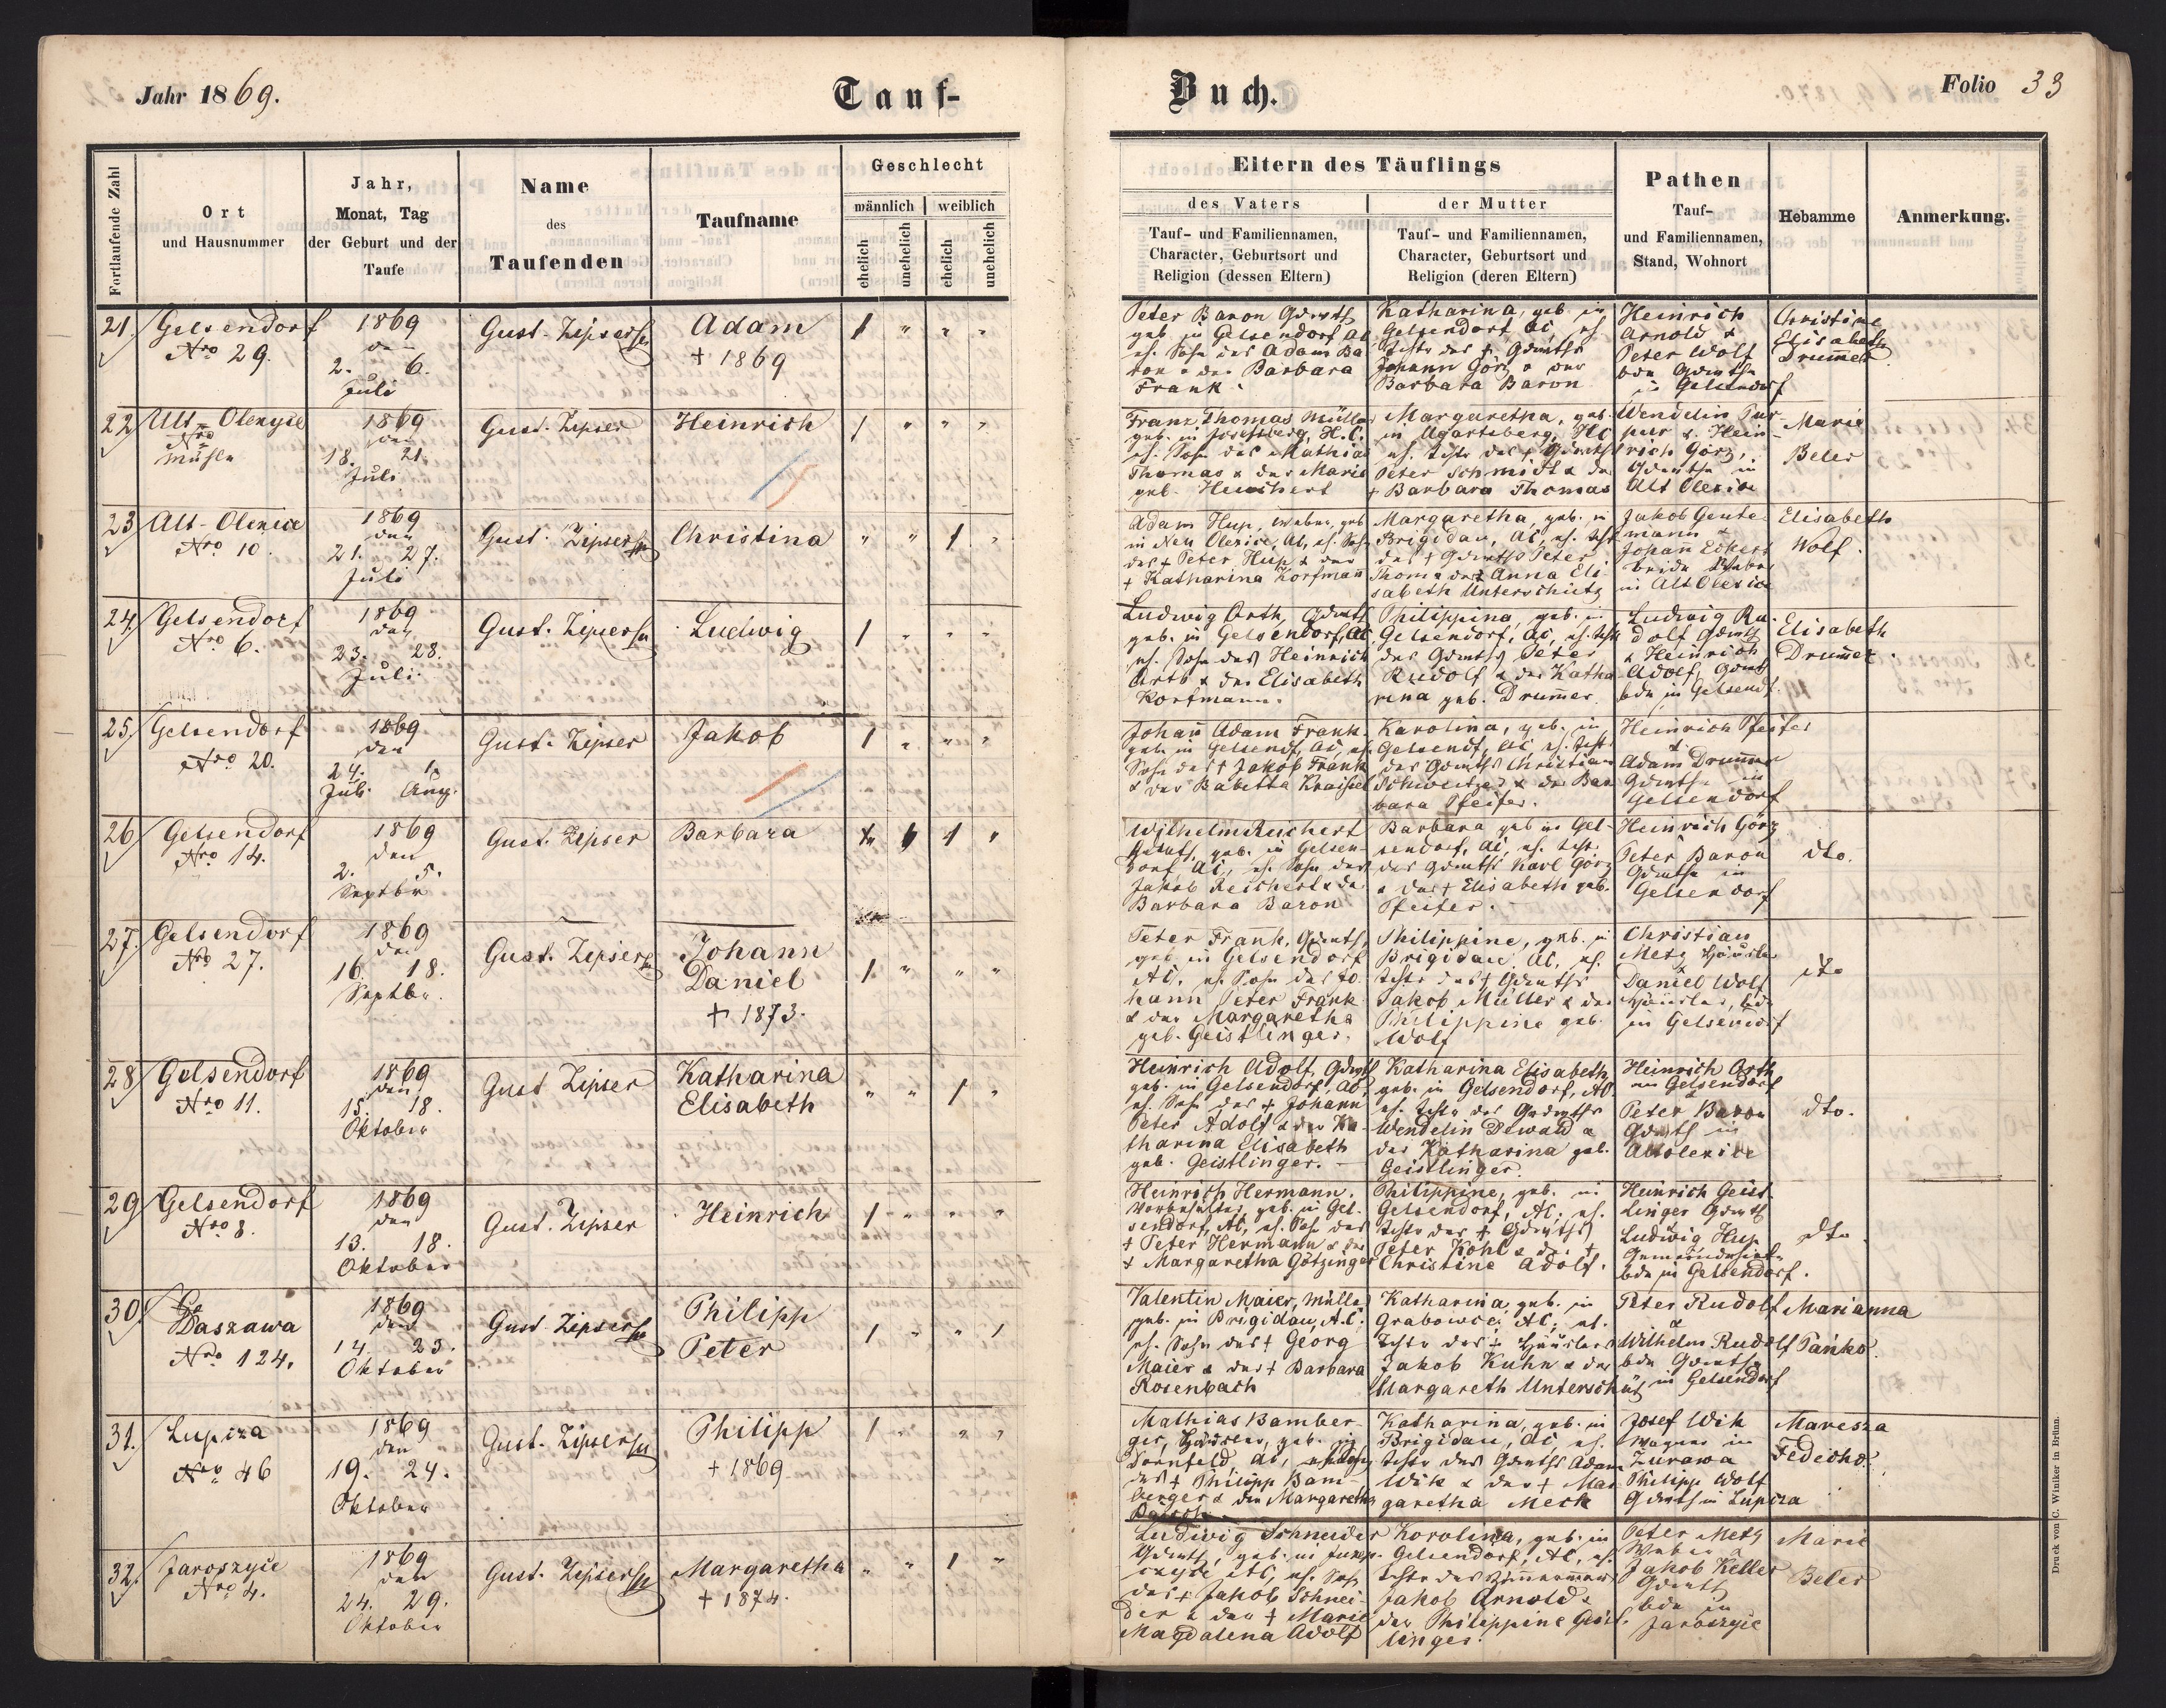 Jahr 1869.
Tauf-
Buch.
Folio 33
Fortlaufende Zahl
Ort
und Hausnummer
Jahr,
Monat, Tag
der Geburt und der
Taufe
Name
des
Taufenden
Taufname
Geschlecht
männlich
weiblich
ehelich
unehelich
ehelich
unehelich
Eltern des Täuflings
des Vaters
Tauf- und Familiennamen,
Character, Geburtsort und
Religion (dessen Eltern)
der Mutter
Tauf- und Familiennamen,
Character, Geburtsort und
Religion (deren Eltern)
Pathen
Tauf-
und Familiennamen,
Stand, Wohnort
Hebamme
Anmerkung.
21
Gelsendorf
Nro 29.
1869
den
2. 6.
Juli
Gust. Zipser
Adam
+ 1869
1 " " "
Peter Baron
geb. in Gelsendorf AC
eh. Sohn des Adam Ba
ron u der Barbara
Frank.
Katharina, geb in
Gelsendorf AC, eh
Johann Görz u der
Barbara Baron
Heinrich
Arnold &
Peter Wolf
in Gelsendorf
Christine
Elisabeth
Drummer
22
Alt-Olexyce
Nro
Mühle
1869
den
18. 21.
Juli
Gust. Zipser
Heinrich
1 " " "
Franz Thomas Müller
geb. in Josefsberg, H.C.
eh. Sohn des Mathias
Thomas & der Marie
geb.
Margaretha, geb.
in Ugartsberg, HC
Peter Schmidt & der
+ Barbara Thomas
Wendelin Pur-
per & Hein-
rich Görz,
in
Alt Olexice
Marie
Beler
23
Alt-Olexice
Nro 10.
1869
den
21. 27.
Juli
Gust. Zipser
Christina
" " 1 "
Adam Hup, Weber, geb
in Neu Olexice, AC, eh. Sohn
des + Peter Hup & der
+ Katharina Korfmann
Margaretha, geb. in
Brigidau, AC, eh.
Peter
Thom & der Anna Eli-
sabeth Unterschütz
Jakob Gente
mann &
Johann Eckert
beide Weber
in Alt Olexice
Elisabeth
Wolf.
24
Gelsendorf
Nro 6.
1869
den
23. 28.
Juli.
Gust. Zipser
Ludwig
1 " " "
Ludwig Orth,
geb. in Gelsendorf, AC,
eh. Sohn des Heinrich
Orth & der Elisabeth
Korfmann.
Philippina, geb. in
Gelsendorf, AC, eh.
Peter
Rudolf & der Katha-
rina geb. Drummer.
Ludwig Ru-
dolf
& Heinrich
Adolf,
bde in Gelsendf.
Elisabeth
Drummer.
25
Gelsendorf
Nro 20.
1869
den
24. 1.
Juli Aug.
Gust. Zipser
Jakob
1 " " "
Johann Adam Frank
geb. in Gelsendf, AC, eh.
Sohn des + Jakob Frank
& der Babetta
Karolina, geb. in
Gelsendf, AC, eh.
Christian
& der Bar
bara Pfeifer.
Heinrich Pfeifer
&
Adam Drummer
in
Gelsendorf
26
Gelsendorf
Nro 14.
1869
den
2. 5.
Septbr
Gust. Zipser
Barbara
1 "
Wilhelm Reichert
geb. in Gelsen-
dorf, AC, eh. Sohn des
Jakob Reichert & der
Barbara Baron
Barbara geb in Gel-
sendorf, AC, eh.
Karl Görz
& der + Elisabeth geb.
Pfeifer.
Heinrich Görz
Peter Baron
in
Gelsendorf
dto.
27.
Gelsendorf
Nro 27.
1869
den
16. 18.
Septbr.
Gust. Zipser
Johann
Daniel
+ 1873.
1 " " "
Peter Frank,
geb. in Gelsendorf
AC, eh. Sohn des Jo-
hann Peter Frank
& der Margaretha
geb. Geistlinger.
Philippine, geb. in
Brigidau, AC, eh.
Jakob Müller & der
Philippine geb.
Wolf
Christian
Metz Häusler
&
Daniel Wolf
Häusler, bde
in Gelsendorf
dto
28
Gelsendorf
Nro 11.
1869
den
15. 18.
Oktober
Gust Zipser
Katharina
Elisabeth
" " 1 "
Heinrich Adolf,
geb. in Gelsendorf, AC,
eh. Sohn des + Johann
Peter Adolf & der Ka-
tharina Elisabeth
geb. Geistlinger.
Katharina Elisabeth
geb. in Gelsendorf, AC.
Wendelin Dewald &
der Katharina geb.
Geistlinger.
Heinrich Orth
in Gelsendorf
&
Peter Baron
in
Altolexice
dto.
29
Gelsendorf
Nro 8.
1869
den
13. 18.
Oktober
Gust. Zipser
Heinrich
1 " " "
Heinrich Hermann.
geb. in Gel-
sendorf, AC, eh. Sohn des
+ Peter Hermann & der
+ Margaretha Götzinger
Philippine, geb. in
Gelsendorf, AC, eh.
Peter Kohl & der +
Christine Adolf.
Heinrich Geist-
linger
&
Ludwig Hup
bde in Gelsendorf.
dto
30.
Daszawa
Nro 124.
1869
den
14. 23.
Oktober
Gust. Zipser
Philipp
Peter
1 " " 1
Valentin Maier, Müller
geb. in Brigidau, A.C.
eh. Sohn des + Georg
Maier & der + Barbara
Rosenbach
Katharina, geb. in
Grabowce, AC, eh.
Tochter des + Häuslers
Jakob Kuhn & der
Margareth Unterschütz
Peter Rudolf
&
Wilhelm Rudolf
bde
in Gelsendorf
Marianna
Panko.
31.
Lupiza
Nro 46
1869
den
19. 24.
Oktober
Gust. Zipser
Philipp
+ 1869
1 " " "
Mathias Bamber-
ger, Häusler, geb. in
Dornfeld, AC, eh Sohn
des + Philipp Bam-
berger & der Margaretha
Katharina, geb. in
Brigidau, AC, eh.
Adam
Wik & der + Mar
garetha Meck
Josef Wik
Wagner in
Zurawa
Philipp Wolf
in Lupiza
Maresza
32.
Jaroszyce
Nro 4.
1869
den
24. 29.
Oktober
Gust. Zipser
Margaretha
+ 1874.
" " 1 "
Ludwig Schneider
geb. in
AC, eh. Sohn
des + Jakob Schnei-
der & der + Marie
Magdalena Adolf
Karolina, geb. in
Gelsendorf, AC, eh.
Tochter des Zimmermanns
Jakob Arnold &
der Philippine Geist-
linger.
Peter Metz
Weber &
Jakob Keller
bde in
Jaroszyce
Marie
Beler
Druck von C. Winiker in Brünn.